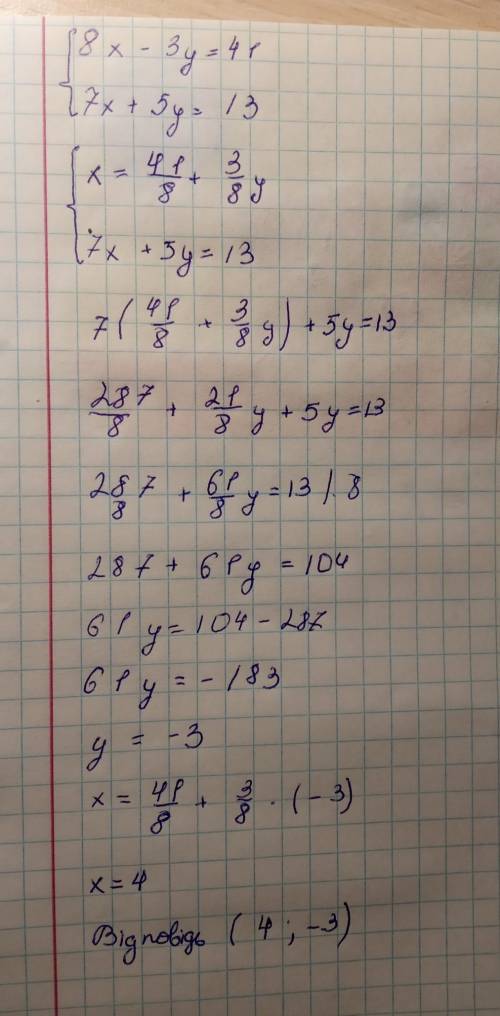 8x - 3y = 41
7x + 5y = 13
x = 41/8 + 3/8 y
7x + 5y = 13
7 ( 41/8 + 3/8 y ) + 5y = 13
287/8 + 21/8 y + 5y = 13
287/8 + 61/8 y = 13 /· 8
287 + 61 y = 104
61 y = 104 - 287
61 y = - 183
y = -3
x = 41/8 + 3/8 · ( - 3 )
x = 4
Відповідь ( 4 ; -3 )